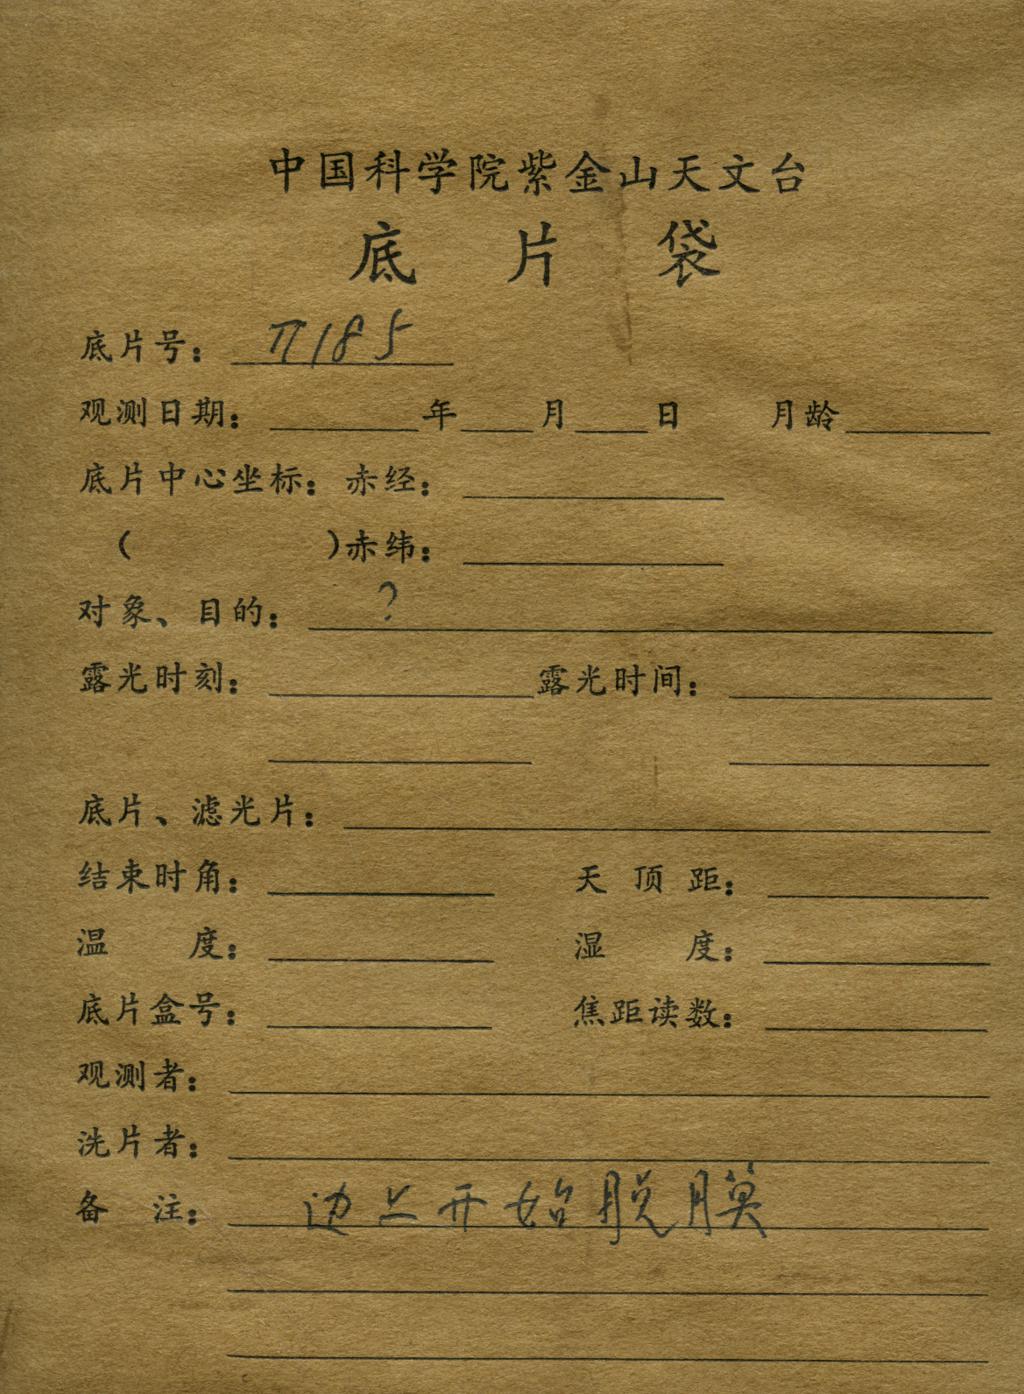 中国科学院紫金山天文台
底片袋
底片号：π185
观测日期：年月日 月龄
底片中心坐标：赤经：
（ ）赤纬：
对象、目的：？
露光时刻： 露光时间：
底片、滤光片：
结束时角： 天顶距：
温度： 湿度：
底片盒号： 焦距读数：
观测者：
洗片者：
备注：边上开始脱膜